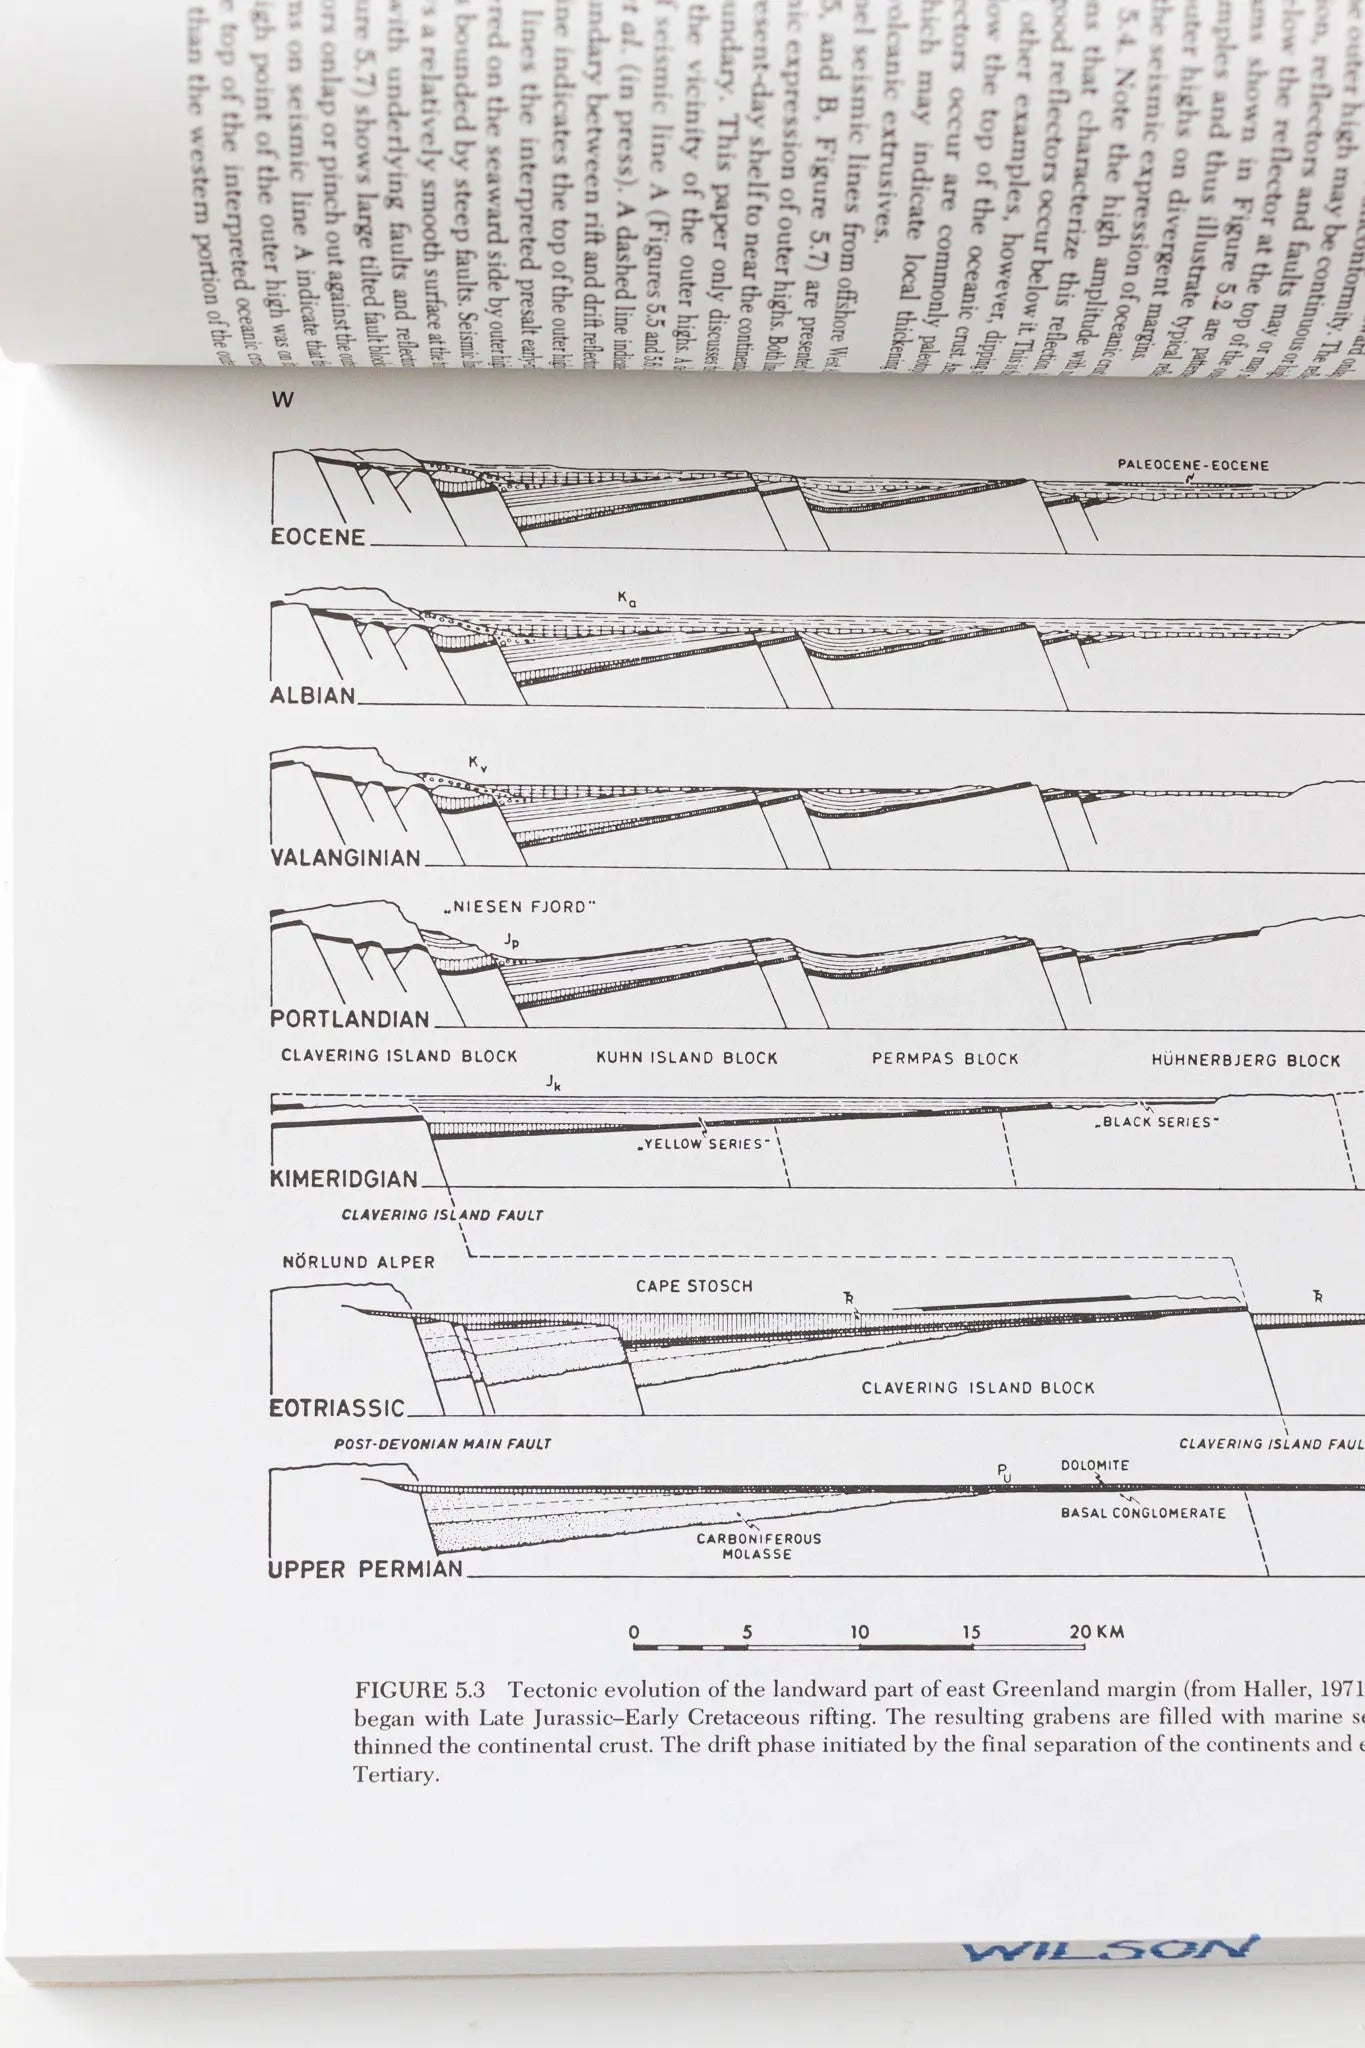 outer high may be
reflectors and faults
the reflector at the top of the
shown in Figure 5.2 are
and thus illustrate typical
outer highs on divergent margins.
the seismic expression of oceanic
5.4. Note the high amplitude
that characterize this reflection
good reflectors occur below it. This
other examples, however, dipping
the top of the oceanic crust.
occur are commonly
which may indicate local thickening
volcanic extrusives.
seismic lines from offshore West
5, and B, Figure 5.7) are presented
expression of outer highs. Both
shelf to near the
This paper only
the vicinity of the outer highs. A
seismic line A (Figures 5.5 and
et al. (in press). A dashed line
between rift and drift
indicates the top of the outer
lines the interpreted presalt
on the seaward side by outer
bounded by steep faults.
a relatively smooth surface at the
with underlying faults and
5.7) shows large tilted fault
onlap or pinch out against the
on seismic line A indicate that
high point of the outer high was on
top of the interpreted oceanic
than the western portion of the
W
PALEOCENE-EOCENE
EOCENE
Ka
ALBIAN
Kv
VALANGINIAN
„NIESEN FJORD"
Jp
PORTLANDIAN
CLAVERING ISLAND BLOCK KUHN ISLAND BLOCK PERMPAS BLOCK HÜHNERBJERG BLOCK
Jk
„YELLOW SERIES" „BLACK SERIES"
KIMERIDGIAN
CLAVERING ISLAND FAULT
NÖRLUND ALPER
CAPE STOSCH
CLAVERING ISLAND BLOCK
EOTRIASSIC
POST-DEVONIAN MAIN FAULT CLAVERING ISLAND FAUL
PU DOLOMITE
BASAL CONGLOMERATE
CARBONIFEROUS
MOLASSE
UPPER PERMIAN
0 5 10 15 20 KM
FIGURE 5.3 Tectonic evolution of the landward part of east Greenland margin (from Haller, 1971
began with Late Jurassic–Early Cretaceous rifting. The resulting grabens are filled with marine se
thinned the continental crust. The drift phase initiated by the final separation of the continents and e
Tertiary.
WILSON